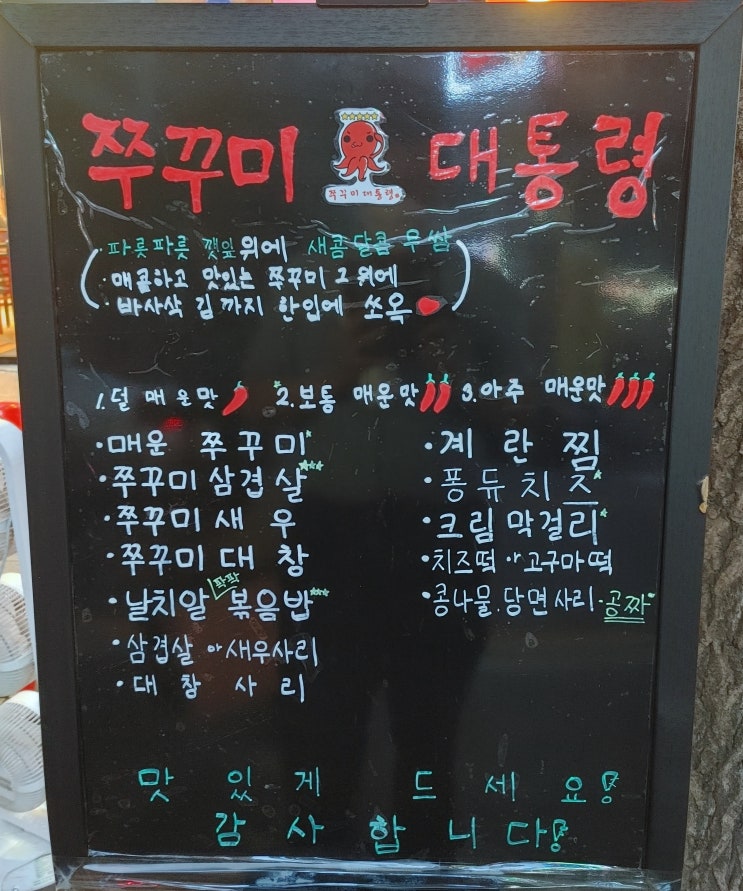 쭈꾸미 대통령
쭈꾸미대통령
· 파릇파릇 깻잎 위에 새콤달콤 무쌈
· 매콤하고 맛있는 쭈꾸미 그 위에
· 바사삭 김까지 한입에 쏘옥
1. 덜 매운맛 2. 보통 매운맛 3. 아주 매운맛
· 매운 쭈꾸미
· 쭈꾸미삼겹살
· 쭈꾸미새우
· 쭈꾸미대창
팍팍
· 날치알 볶음밥
· 삼겹살 or 새우사리
· 대창사리
· 계란찜
· 퐁듀치즈
· 크림막걸리
· 치즈떡 or 고구마떡
· 콩나물.당면사리·공짜
맛있게 드세요!
감사합니다!